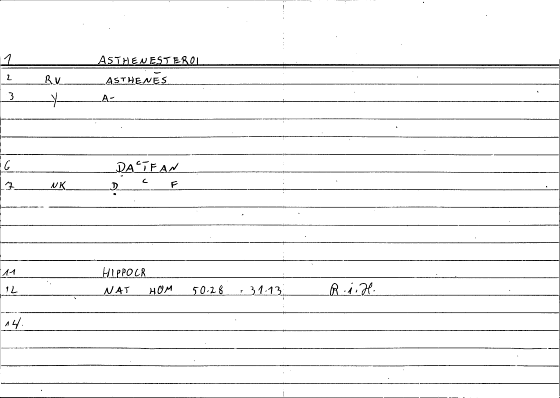 1 ASTHENESTEROI
2 RV ASTHENĒS
3 Y A-
6 ḌAᶜTFAN
7 NK Ḍ ᶜ F
11 HIPPOCR
12 NAT HOM 50.28 - 31.13 R.i.H.
14.